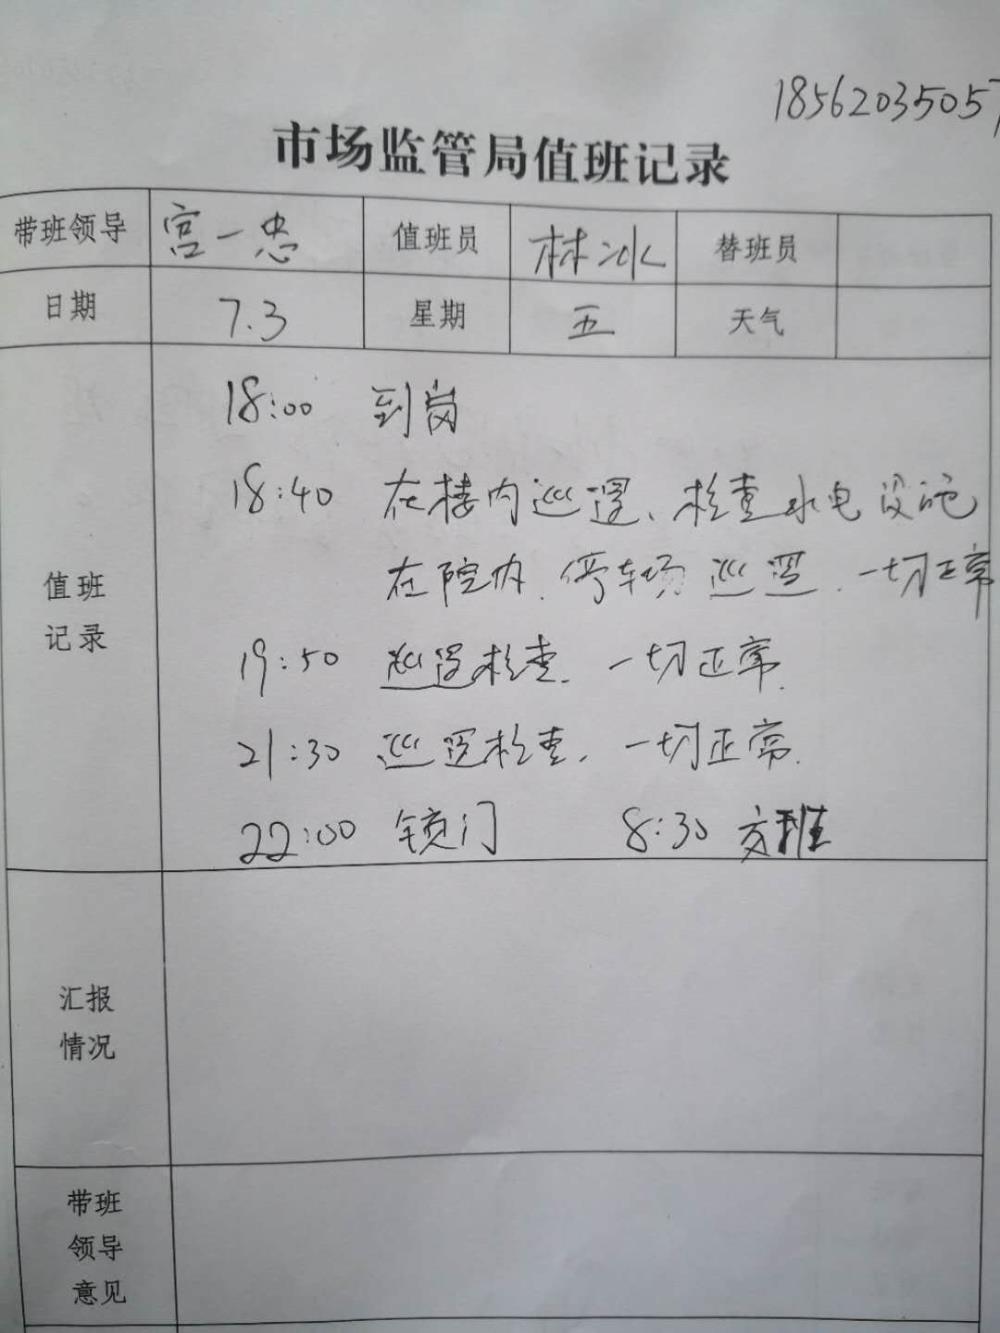 18562035057
市场监管局值班记录
带班领导 宫一忠 值班员 林冰 替班员
日期 7.3 星期 五 天气
18:00 到岗
18:40 在楼内巡逻、检查水电设施
在院内、停车场巡逻、一切正常
值班
记录
19:50 巡逻检查、一切正常.
21:30 巡逻检查、一切正常.
22:00 锁门 8:30 交班
汇报
情况
带班
领导
意见